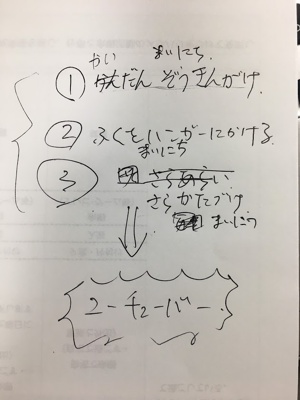 かい まいにち
① だん ぞうきんがけ.
② ふくをハンガーにかける
まいにち
③ さらあらい
さらかたづけ
まいにつ
ユーチューバー.